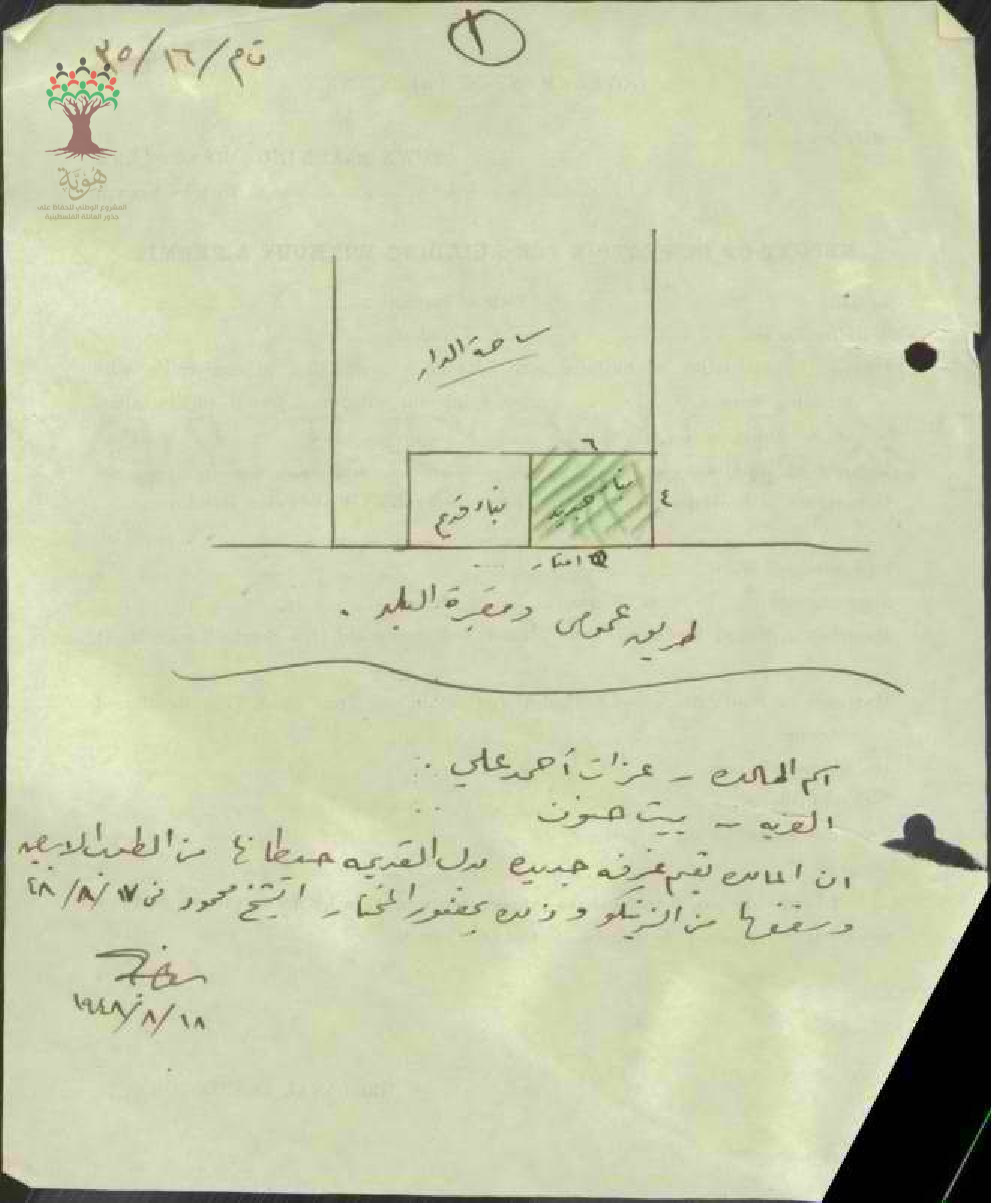 ١
ق م/١٦/٣٥
هُوِيَّة
المشروع الوطني للحفاظ على
جذور العائلة الفلسطينية
ساحة الدار
٦
بناء جديد
٤
بناء قديم
امتار
طريق عمومي ومقبرة البلد .
اسم المالك - عزات أحمد علي
القريه - بيت حنون
ان المالك يقيم غرفه جديده بدل القديمه حيطانها من الطوب
وسقفها من الزينكو وذلك بحضور المختار الشيخ محمود في ١٧/٨/٤٨
١٩٤٨/٨/١٨